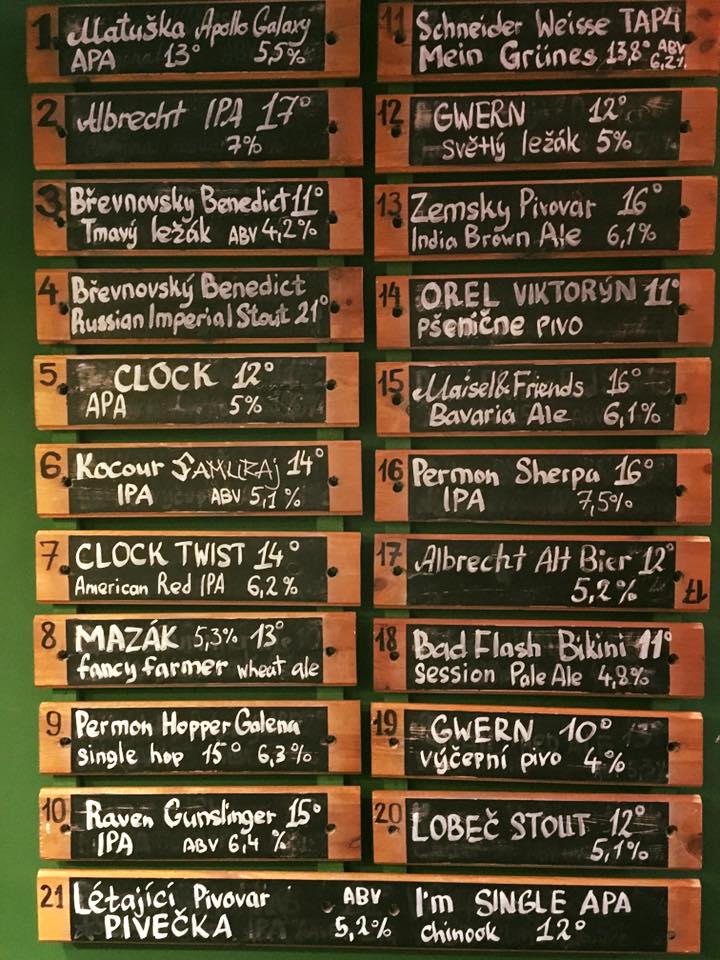 1. Matuška Apollo Galaxy
APA 13° 5,5%
2. Albrecht IPA 17°
7%
3. Břevnovsky Benedict 11°
Tmavý ležák ABV 4,2%
4. Břevnovský Benedict
Russian Imperial Stout 21°
5. CLOCK 12°
APA 5%
6. Kocour SAMURAj 14°
IPA ABV 5,1%
7. CLOCK TWIST 14°
American Red IPA 6,2%
8. MAZÁK 5,3% 13°
fancy farmer wheat ale
9 Permon Hopper Galena
single hop 15° 6,3%
10. Raven Gunslinger 15°
IPA ABV 6,4 %
11 Schneider Weisse TAP4
Mein Grünes 13,8° ABV
6,2%
12 GWERN 12°
světlý ležák 5%
13 Zemsky Pivovar 16°
India Brown Ale 6,1%
14 OREL VIKTORÝN 11°
pšenične pivo
15 Maisel & Friends 16°
Bavaria Ale 6,1%
16 Permon Sherpa 16°
IPA 7,5%
17 Albrecht Alt Bier 12°
5,2% 17
18 Bad Flash Bikini 11°
Session Pale Ale 4,8%
19 GWERN 10°
výčepní pivo 4%
20 LOBEČ STOUT 12°
5,1%
21 Létající Pivovar ABV I'm SINGLE APA
PIVEČKA 5,2% chinook 12°